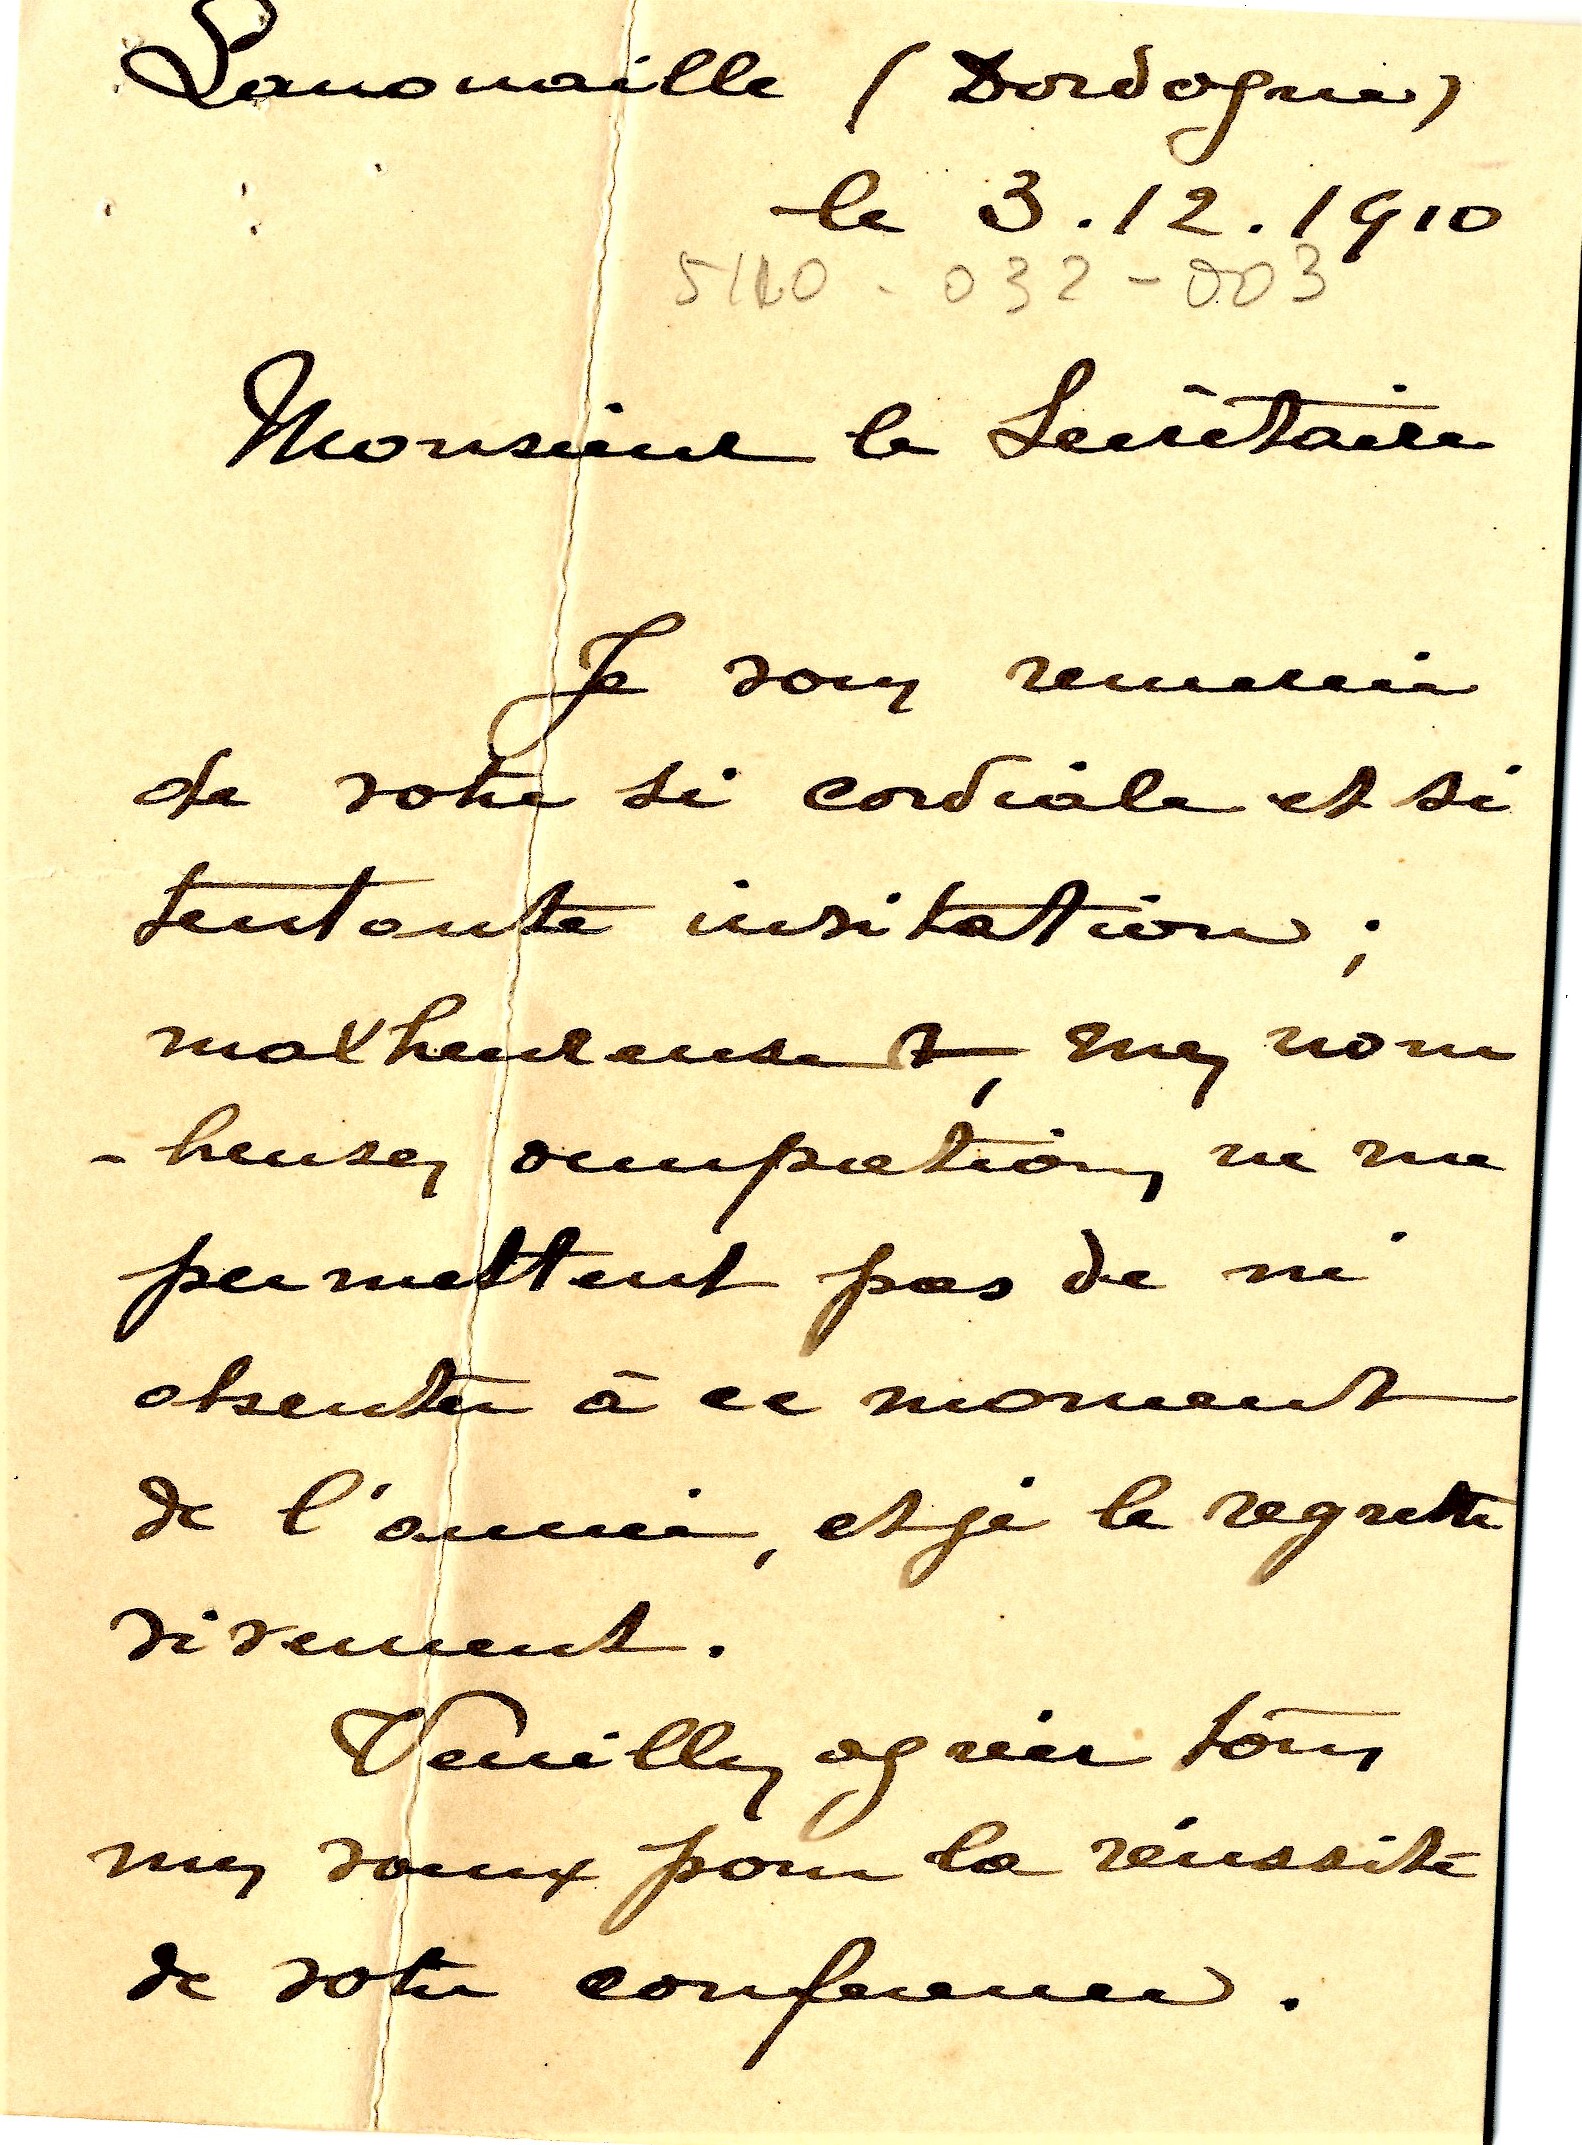 Lanouaille (Dordogne)
le 3.12.1910
5110 - 032 - 003
Monsieur le Secrétaire
Je vous remercie
de votre si cordiale et si
tentante invitation ;
malheureusement, mes nom
-breuses occupations ne me
permettent pas de m'
absenter à ce moment
de l'année, et je le regrette
vivement.
Veuillez agréer tous
mes vœux pour la réussite
de votre conférence.